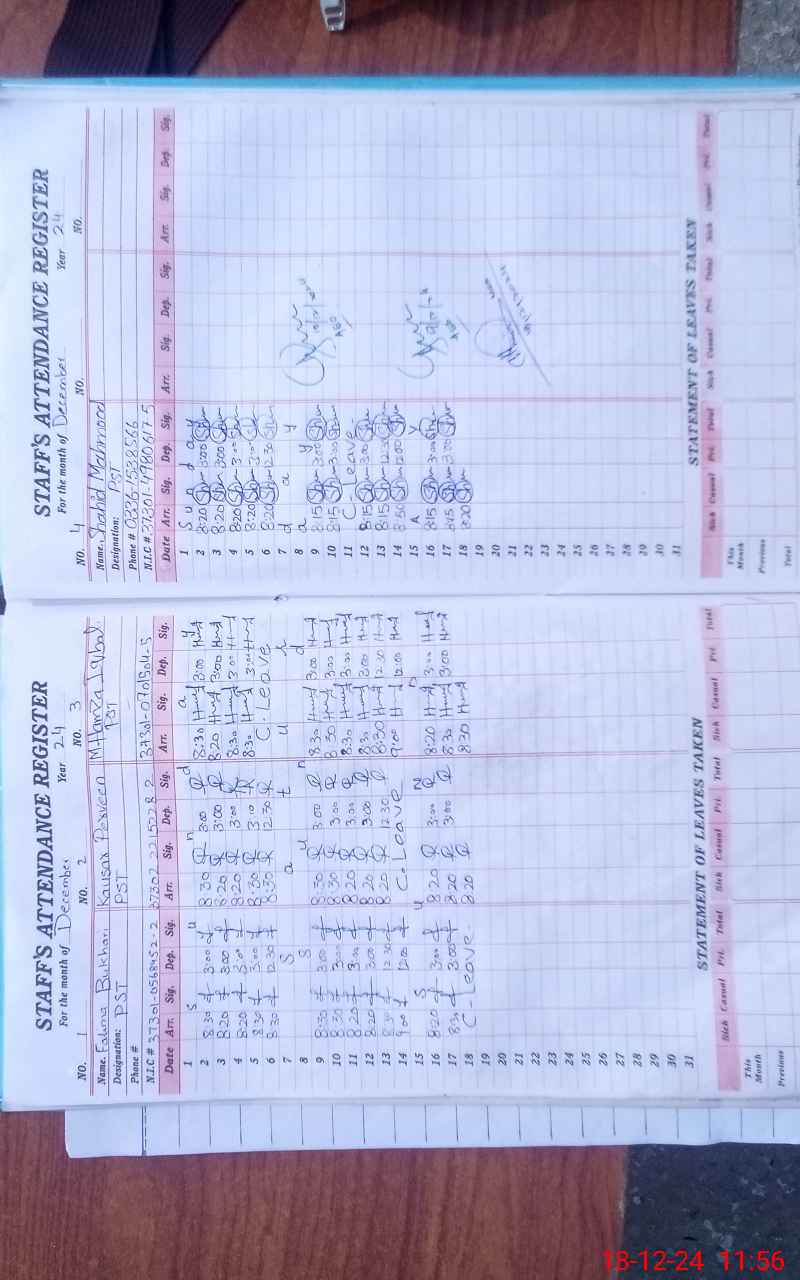 STAFF'S ATTENDANCE REGISTER
For the month of December Year 24
NO. 1 NO. 2 NO. 3
Name. Fatima Bukhari Kausar Perveen M Hamza Iqbal
Designation: PST PST PST
Phone #
N.I.C # 37301-0568452-2 37302 2215228 2 37301-0701504-5
Date Arr. Sig. Dep. Sig. Arr. Sig. Dep. Sig. Arr. Sig. Dep. Sig.
1 S u n d a y
2 8:30 3:00 8:30 3:00 8:30 3:00
3 8:20 3:00 8:20 3:00 8:20 3:00
4 8:20 3:00 8:20 3:00 8:30 3:00
5 8:30 3:00 8:30 3:10 8:30 3:00
6 8:30 12:30 8:30 12:30 C. Leave
7 S a t u r
8 S u n d
9 8:30 3:00 8:30 3:00 8:30 3:00
10 8:30 3:00 8:30 3:00 8:30 3:00
11 8:20 3:00 8:20 3:00 8:30 3:00
12 8:20 3:00 8:20 3:00 8:30 3:00
13 8:30 12:30 8:20 12:30 8:30 12:30
14 9:00 12:00 C. Leave 9:00 12:00
15 S u n D
16 8:20 3:00 8:20 3:00 8:20 3:00
17 8:30 3:00 8:20 3:00 8:30 3:00
18 C. Leave. 8:20 8:30
19
20
21
22
23
24
25
26
27
28
29
30
31
STATEMENT OF LEAVES TAKEN
Sick Casual Pri. Total Sick Casual Pri. Total Sick Casual Pri. Total
This Month
Previous
STAFF'S ATTENDANCE REGISTER
For the month of December Year 24
NO. 4 NO. NO.
Name. Shahid Mahmood
Designation: PST
Phone # 0336-1538566
N.I.C # 37301-4980617-5
Date Arr. Sig. Dep. Sig. Arr. Sig. Dep. Sig. Arr. Sig. Dep. Sig.
1 S u n d a y
2 8:20 3:00
3 8:20 3:00
4 8:20 3:00
5 8:20 3:00
6 8:20 12:30
7 d a y
8 a y
9 8:15 3:00
10 8:15 3:00
11 C- Leave
12 8:15 3:00
13 8:15 12:30
14 8:50 12:00
15 A Y
16 8:15 3:00
17 8:15 3:00
18 8:20
19
20
21
22
23
24
25
26
27
28
29
30
31
AEO
AEO
STATEMENT OF LEAVES TAKEN
Sick Casual Pri. Total Sick Casual Pri. Total Sick Casual Pri. Total
This Month
Previous
Total
18-12-24 11:56